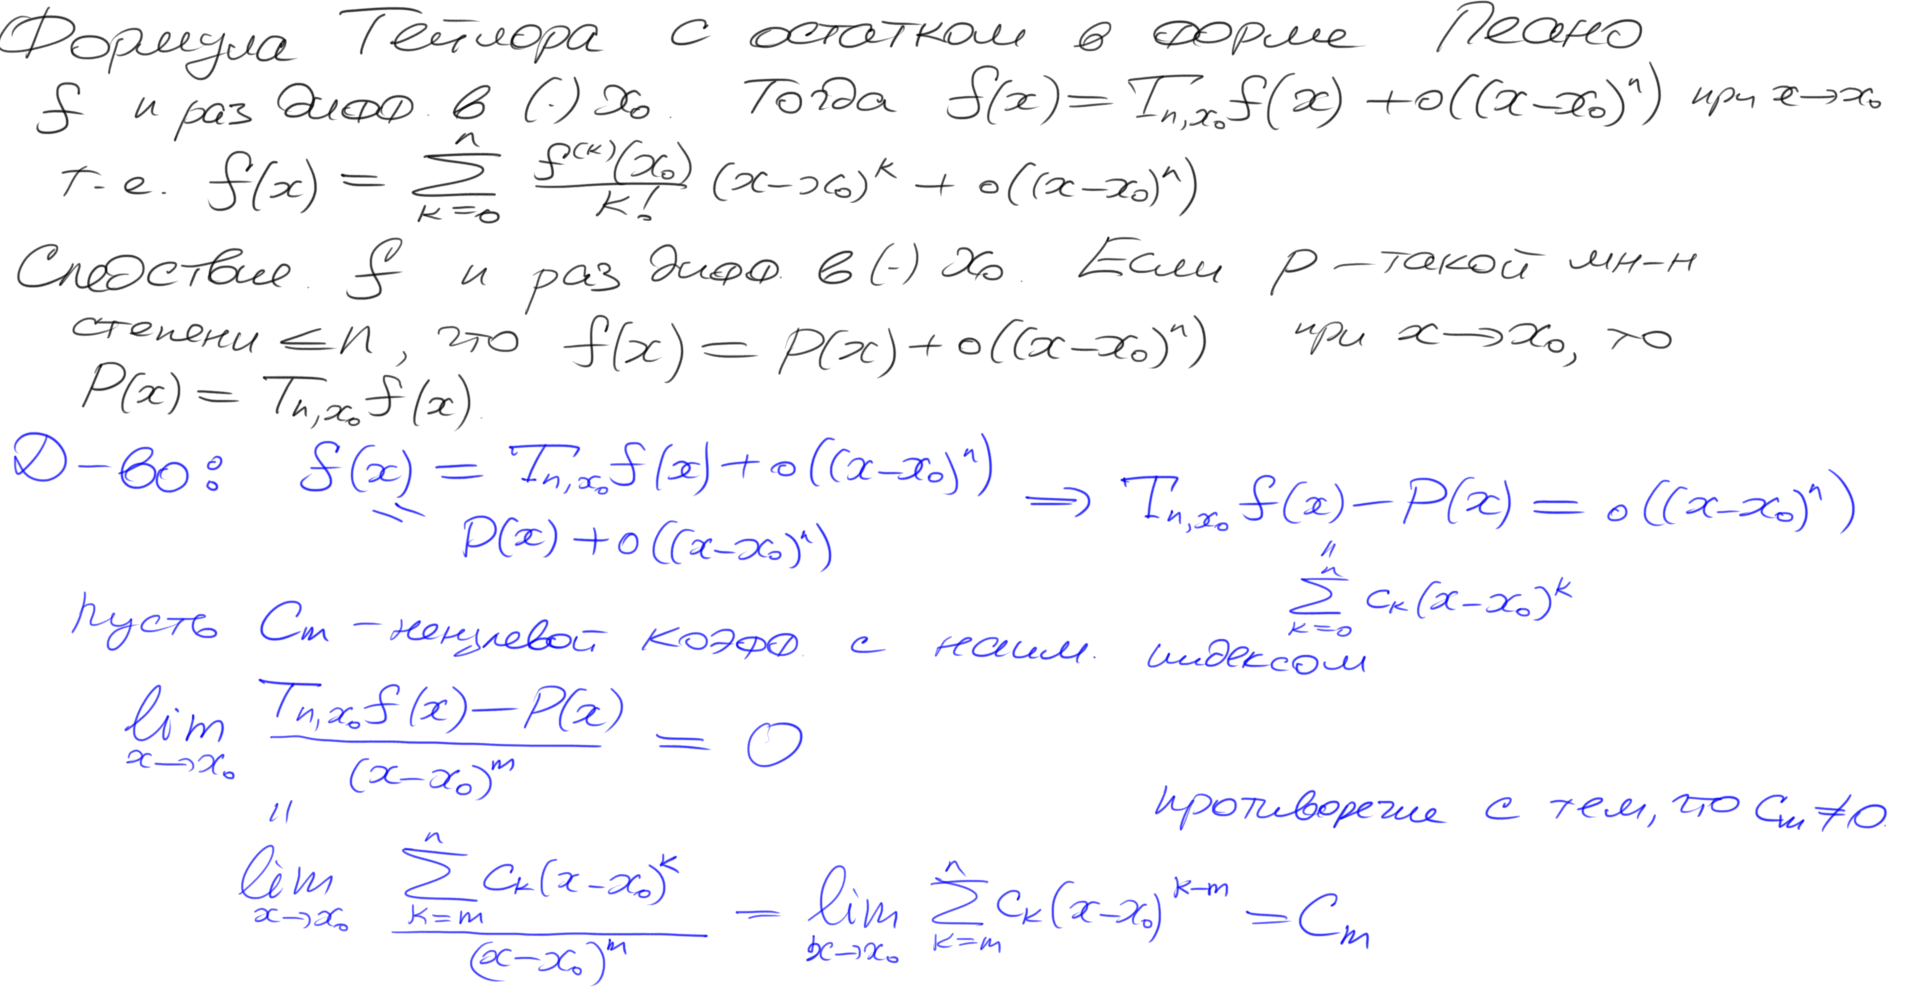 Формула Тейлора с остатком в форме Пеано
f n раз дифф. в (·) x₀. Тогда f(x) = T_{n,x₀}f(x) + o((x−x₀)ⁿ) при x→x₀
т.е. f(x) = \sum_{k=0}^{n} \frac{f^{(k)}(x₀)}{k!} (x−x₀)^k + o((x−x₀)ⁿ)
Следствие. f n раз дифф. в (·) x₀. Если P – такой мн-н
степени ≤ n, что f(x) = P(x) + o((x−x₀)ⁿ) при x→x₀, то
P(x) = T_{n,x₀}f(x).
Д-во: f(x) = T_{n,x₀}f(x) + o((x−x₀)ⁿ) ⇒ T_{n,x₀}f(x) − P(x) = o((x−x₀)ⁿ)
= P(x) + o((x−x₀)ⁿ)
= \sum_{k=0}^{n} c_k(x−x₀)^k
Пусть C_m – ненулевой коэфф. с наим. индексом
\lim_{x→x₀} \frac{T_{n,x₀}f(x) − P(x)}{(x−x₀)^m} = 0
противоречие с тем, что C_m ≠ 0.
= \lim_{x→x₀} \frac{\sum_{k=m}^{n} c_k(x−x₀)^k}{(x−x₀)^m} = \lim_{x→x₀} \sum_{k=m}^{n} c_k(x−x₀)^{k−m} = C_m